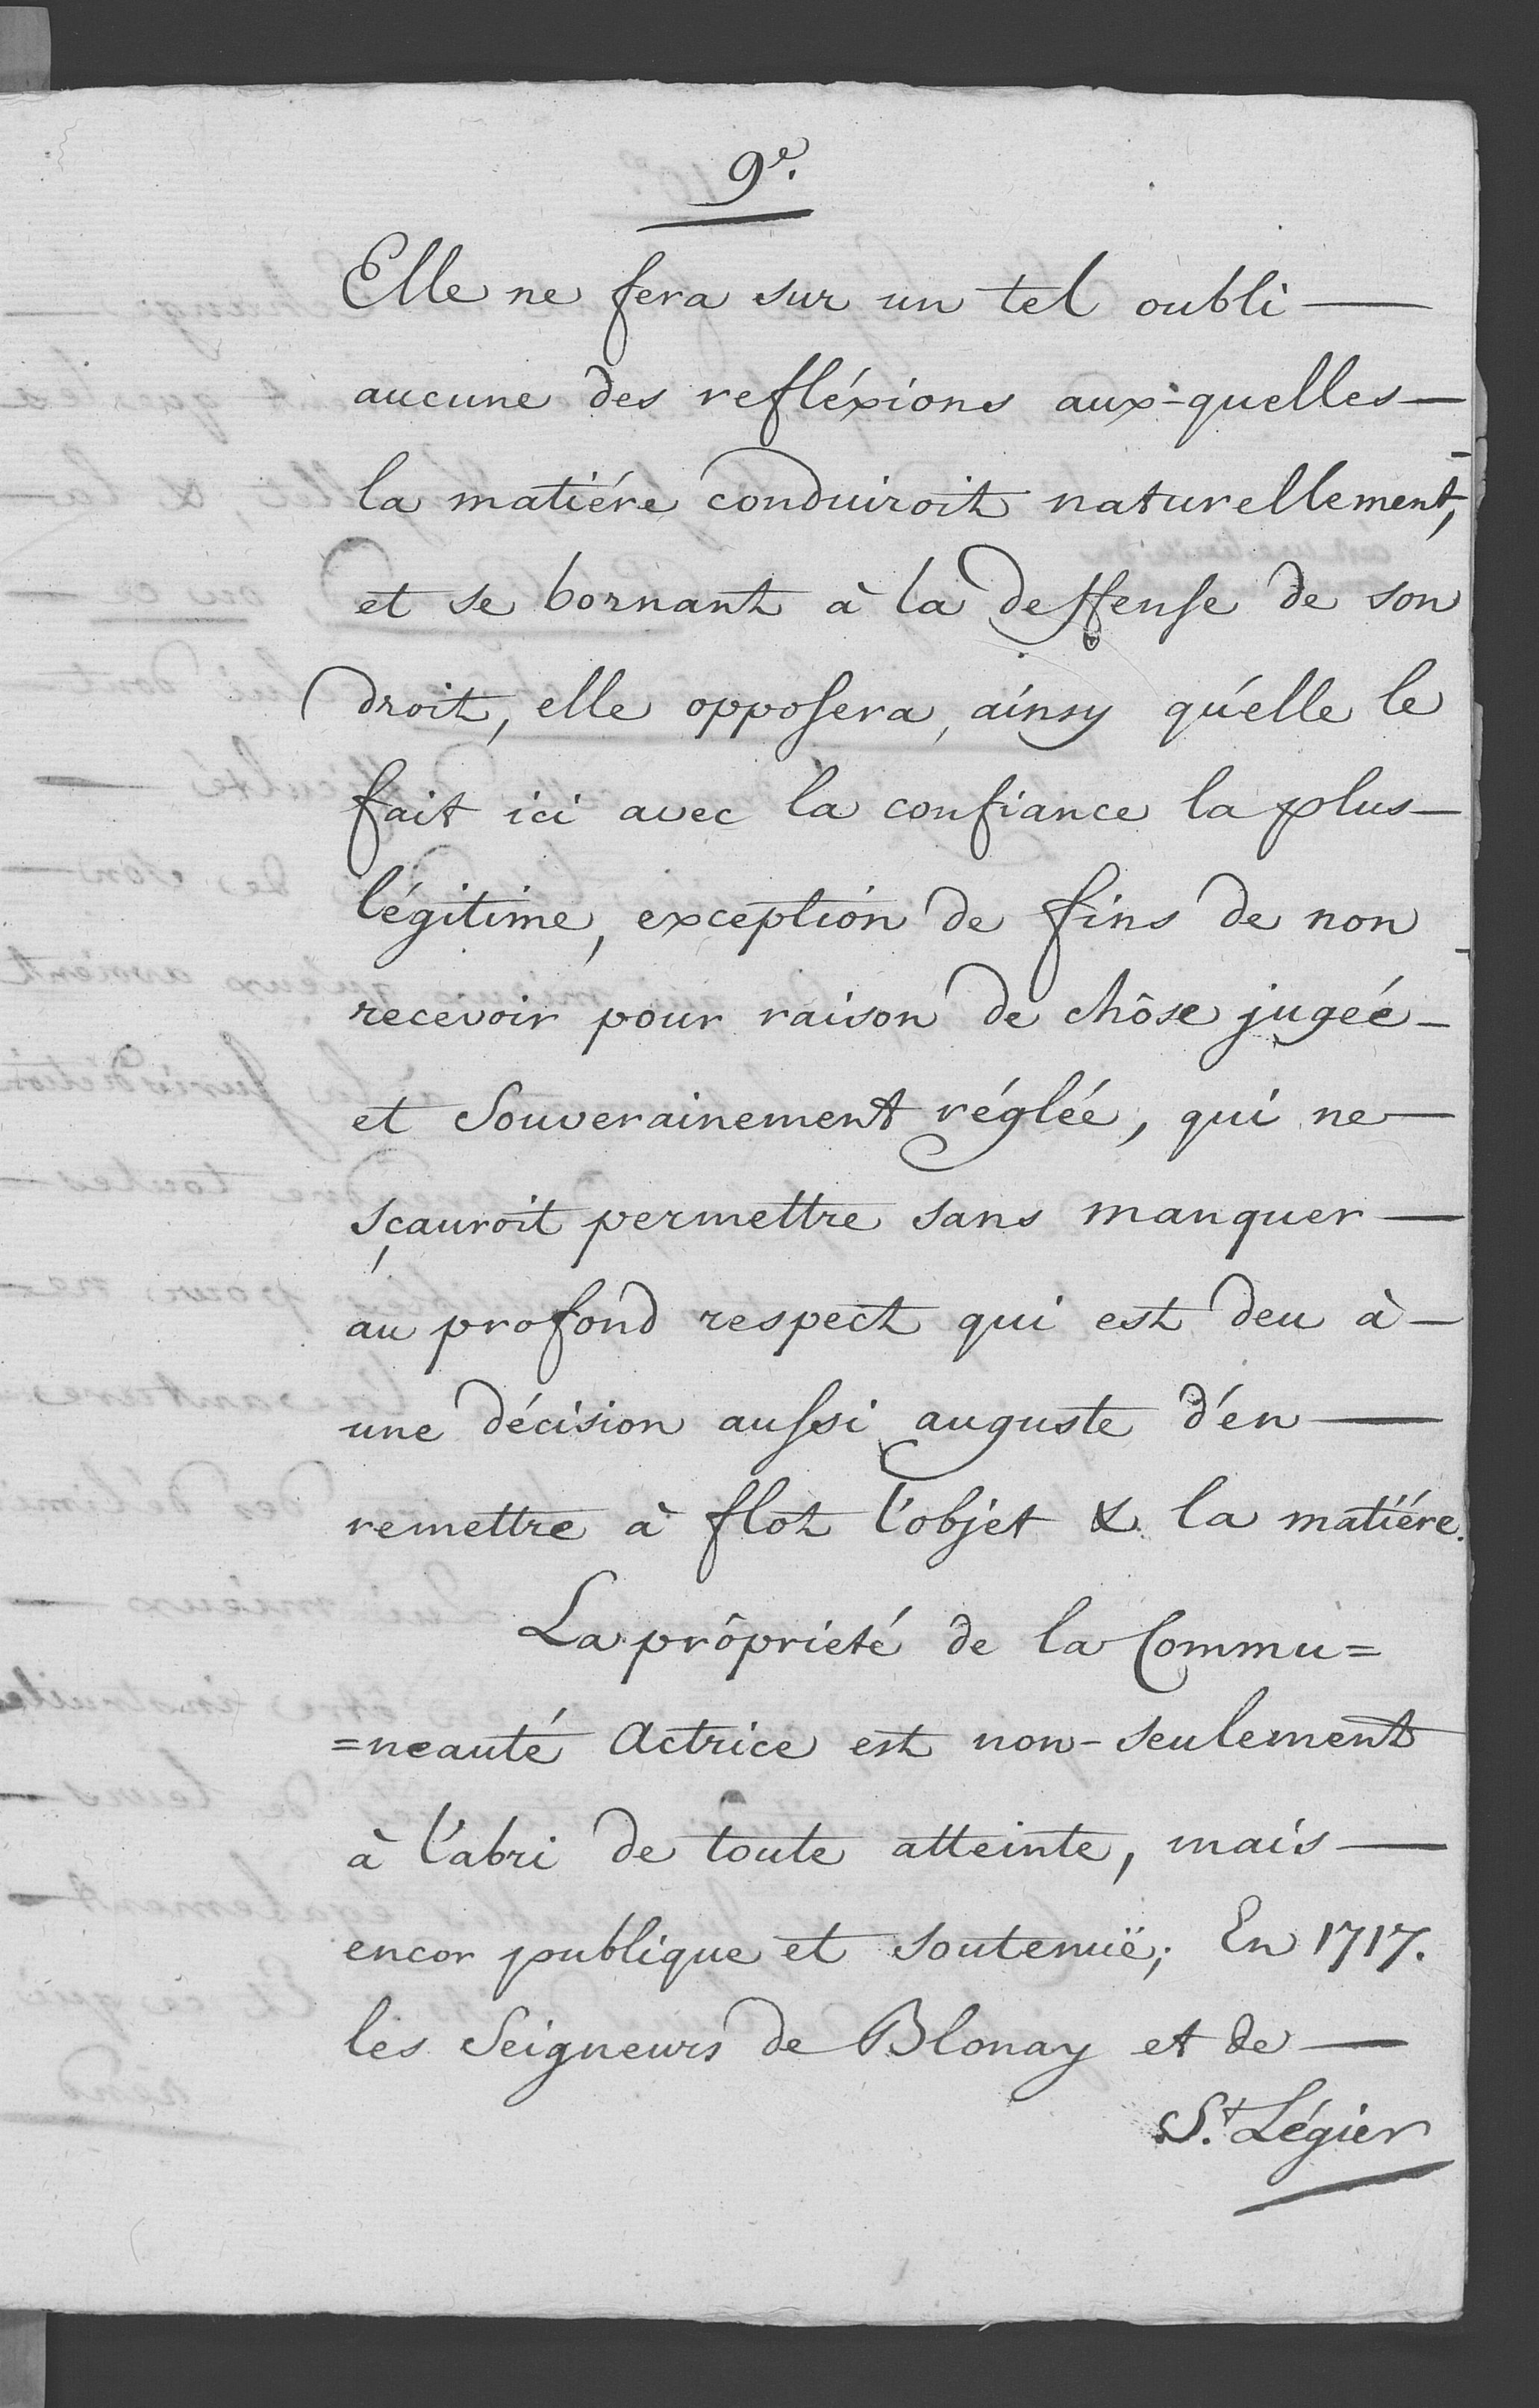 9e.
Elle ne fera sur un tel oubli —
aucune des refléxions aux-quelles —
la matiére conduiroit naturellement,
et se bornant à la deffense de son
droit, elle opposera, ainsy qu'elle le
fait ici avec la confiance la plus —
légitime, exception de fins de non
recevoir pour raison de chôse jugée —
et Souverainement réglée, qui ne —
sçauroit permettre sans manquer —
au profond respect qui est deu à —
une décision aussi auguste d'en —
remettre à flot l'objet & la matiére.
La prôprieté de la Commu=
=neauté Actrice est non-seulement
à l'abri de toute atteinte, mais —
encor publique et soutenuë; En 1717.
les Seigneurs de Blonay et de —
St. Légier